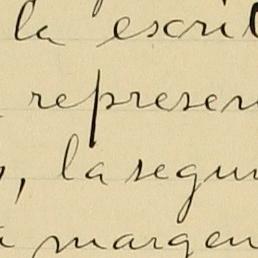 la escrit
represen
, la segun
a margen